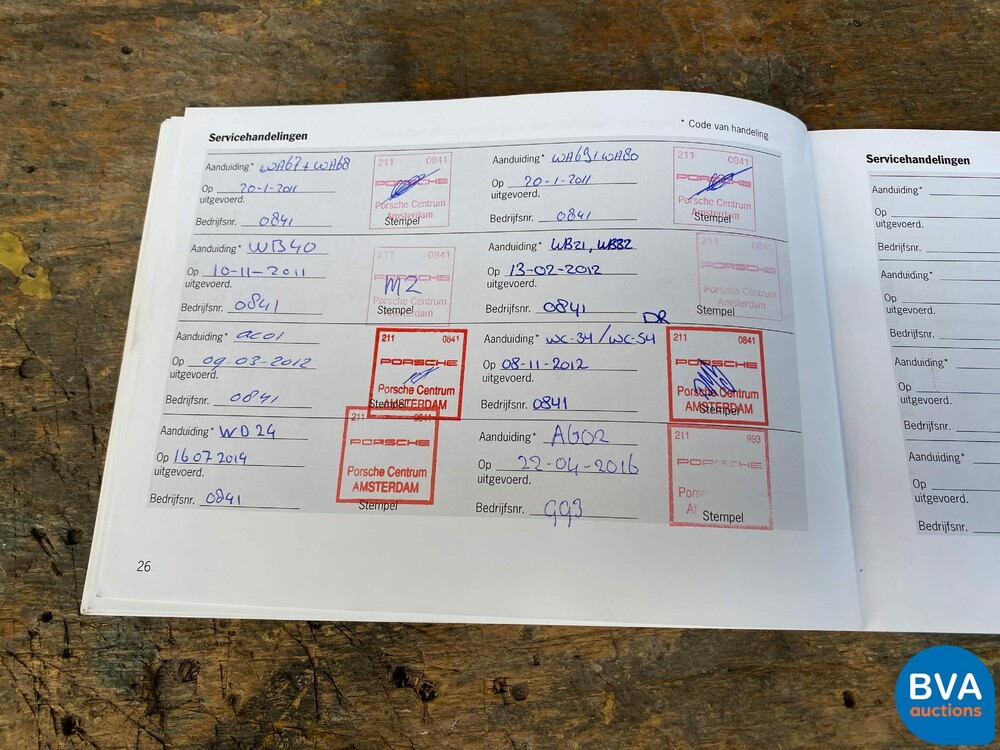 Servicehandelingen
* Code van handeling
Aanduiding* WA67 + WA68
Op 20-1-2011
uitgevoerd.
Bedrijfsnr. 0841
211 0841
PORSCHE
Porsche Centrum
Amsterdam
Stempel
Aanduiding* WA69+WA80
Op 20-1-2011
uitgevoerd.
Bedrijfsnr. 0841
211 0841
PORSCHE
Porsche Centrum
Amsterdam
Stempel
Aanduiding* WB40
Op 10-11-2011
uitgevoerd.
Bedrijfsnr. 0841
211 0841
PORSCHE
M2
Porsche Centrum
Amsterdam
Stempel
Aanduiding* WB21, WB82
Op 13-02-2012
uitgevoerd.
Bedrijfsnr. 0841
211 0841
PORSCHE
Porsche Centrum
Amsterdam
Stempel
Aanduiding* AC01
Op 09-03-2012
uitgevoerd.
Bedrijfsnr. 0841
211 0841
PORSCHE
Porsche Centrum
AMSTERDAM
Stempel
DR
Aanduiding* WC-34/WC-54
Op 08-11-2012
uitgevoerd.
Bedrijfsnr. 0841
211 0841
PORSCHE
Porsche Centrum
AMSTERDAM
Stempel
Aanduiding* WD24
Op 16 07 2014
uitgevoerd.
Bedrijfsnr. 0841
211 0841
PORSCHE
Porsche Centrum
AMSTERDAM
Stempel
Aanduiding* AG02
Op 22-04-2016
uitgevoerd.
Bedrijfsnr. 993
211 993
PORSCHE
Stempel
26
Servicehandelingen
Aanduiding*
Op
uitgevoerd.
Bedrijfsnr.
Aanduiding*
Op
uitgevoerd.
Bedrijfsnr.
Aanduiding*
Op
uitgevoerd.
Bedrijfsnr.
Aanduiding*
Op
uitgevoerd.
Bedrijfsnr.
BVA
auctions